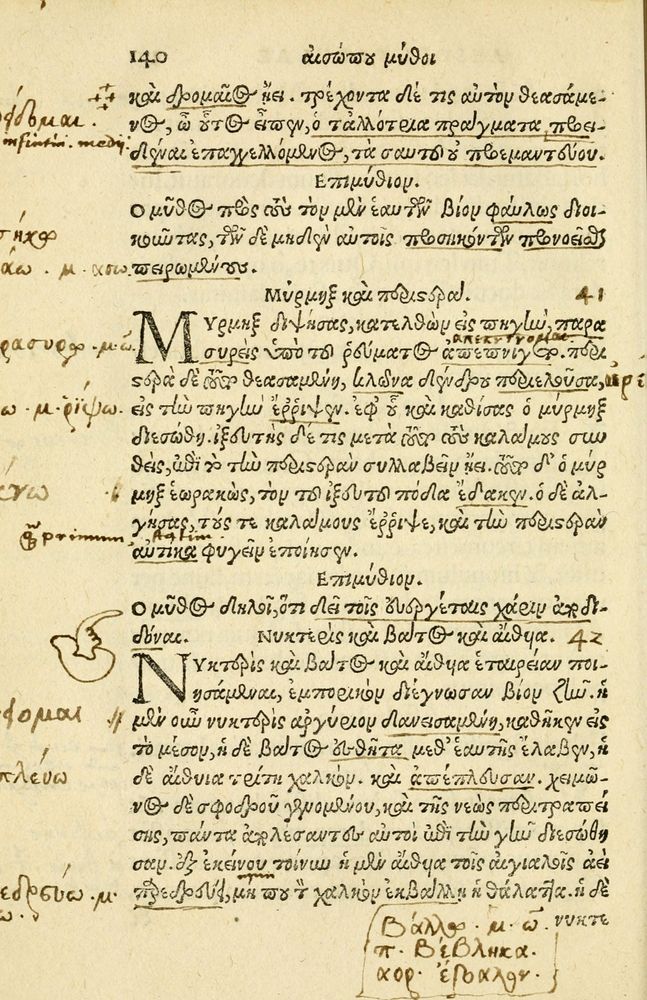 140 αἰσώπου μῦθοι
καὶ δρομαῖος ᾔει. τρέχοντα δέ τις αὐτὸν θεασάμε-
νος, ὦ οὗτος εἶπεν, ὁ τἀλλότρια πράγματα προει-
δέναι ἐπαγγελλόμενος, τὰ σαυτοῦ οὐ προεμαντεύου.
Επιμύθιον.
Ο μῦθος πρὸς τοὺς τὸν μὲν ἑαυτῶν βίον φαύλως διοι-
κοῦντας, τῶν δὲ μηδὲν αὐτοῖς προσηκόντων προνοεῖσθαι
πειρωμένους.
Μύρμηξ καὶ περιστερά. 41
ΜΥρμηξ διψήσας, κατελθὼν εἰς πηγὴν, παρα
συρεὶς ὑπὸ τοῦ ῥεύματος ἀπεπνίγετο. περι
στερὰ δὲ τοῦτο θεασαμένη, κλῶνα δένδρου περιελοῦσα,
εἰς τὴν πηγὴν ἔρριψεν. ἐφ' οὗ καὶ καθίσας ὁ μύρμηξ
διεσώθη. ἰξευτὴς δέ τις μετὰ τοῦτο τοὺς καλάμους συν
θεὶς, ἐπὶ τὸ τὴν περιστερὰν συλλαβεῖν ᾔει. τοῦτο δ' ὁ μύρ
μηξ ἑωρακὼς, τὸν τοῦ ἰξευτοῦ πόδα ἔδακεν. ὁ δὲ ἀλ-
γήσας, τούς τε καλάμους ἔρριψε, καὶ τὴν περιστερὰν
αὐτίκα φυγεῖν ἐποίησεν.
Επιμύθιον.
Ο μῦθος δηλοῖ, ὅτι δεῖ τοῖς εὐεργέταις χάριν ἀποδι-
δόναι. Νυκτερὶς καὶ βάτος καὶ αἴθυα. 42
ΝΥκτερὶς καὶ βάτος καὶ αἴθυα ἑταιρείαν ποι-
ησάμεναι, ἐμπορικὸν διέγνωσαν βίον ζῆν. ἡ
μὲν οὖν νυκτερὶς ἀργύριον δανεισαμένη, καθῆκεν εἰς
τὸ μέσον, ἡ δὲ βάτος ἐσθῆτα μεθ' ἑαυτῆς ἔλαβεν, ἡ
δὲ αἴθυια τρίτη χαλκόν. καὶ ἀπέπλευσαν. χειμῶ-
νος δὲ σφοδροῦ γενομένου, καὶ τῆς νεὼς περιτραπεί
σης, πάντα ἀπολέσαντες αὐτοὶ ἐπὶ τὴν γῆν διεσώθη
σαν. ἐξ ἐκείνου τοίνυν ἡ μὲν αἴθυα τοῖς αἰγιαλοῖς ἀεὶ
παρεδρεύει, μή που τὸν χαλκὸν ἐκβάλλῃ ἡ θάλαττα. ἡ δὲ
νυκτε
Βάλλω. μ. ῶ.
π. βέβληκα.
αορ. ἔβαλον.